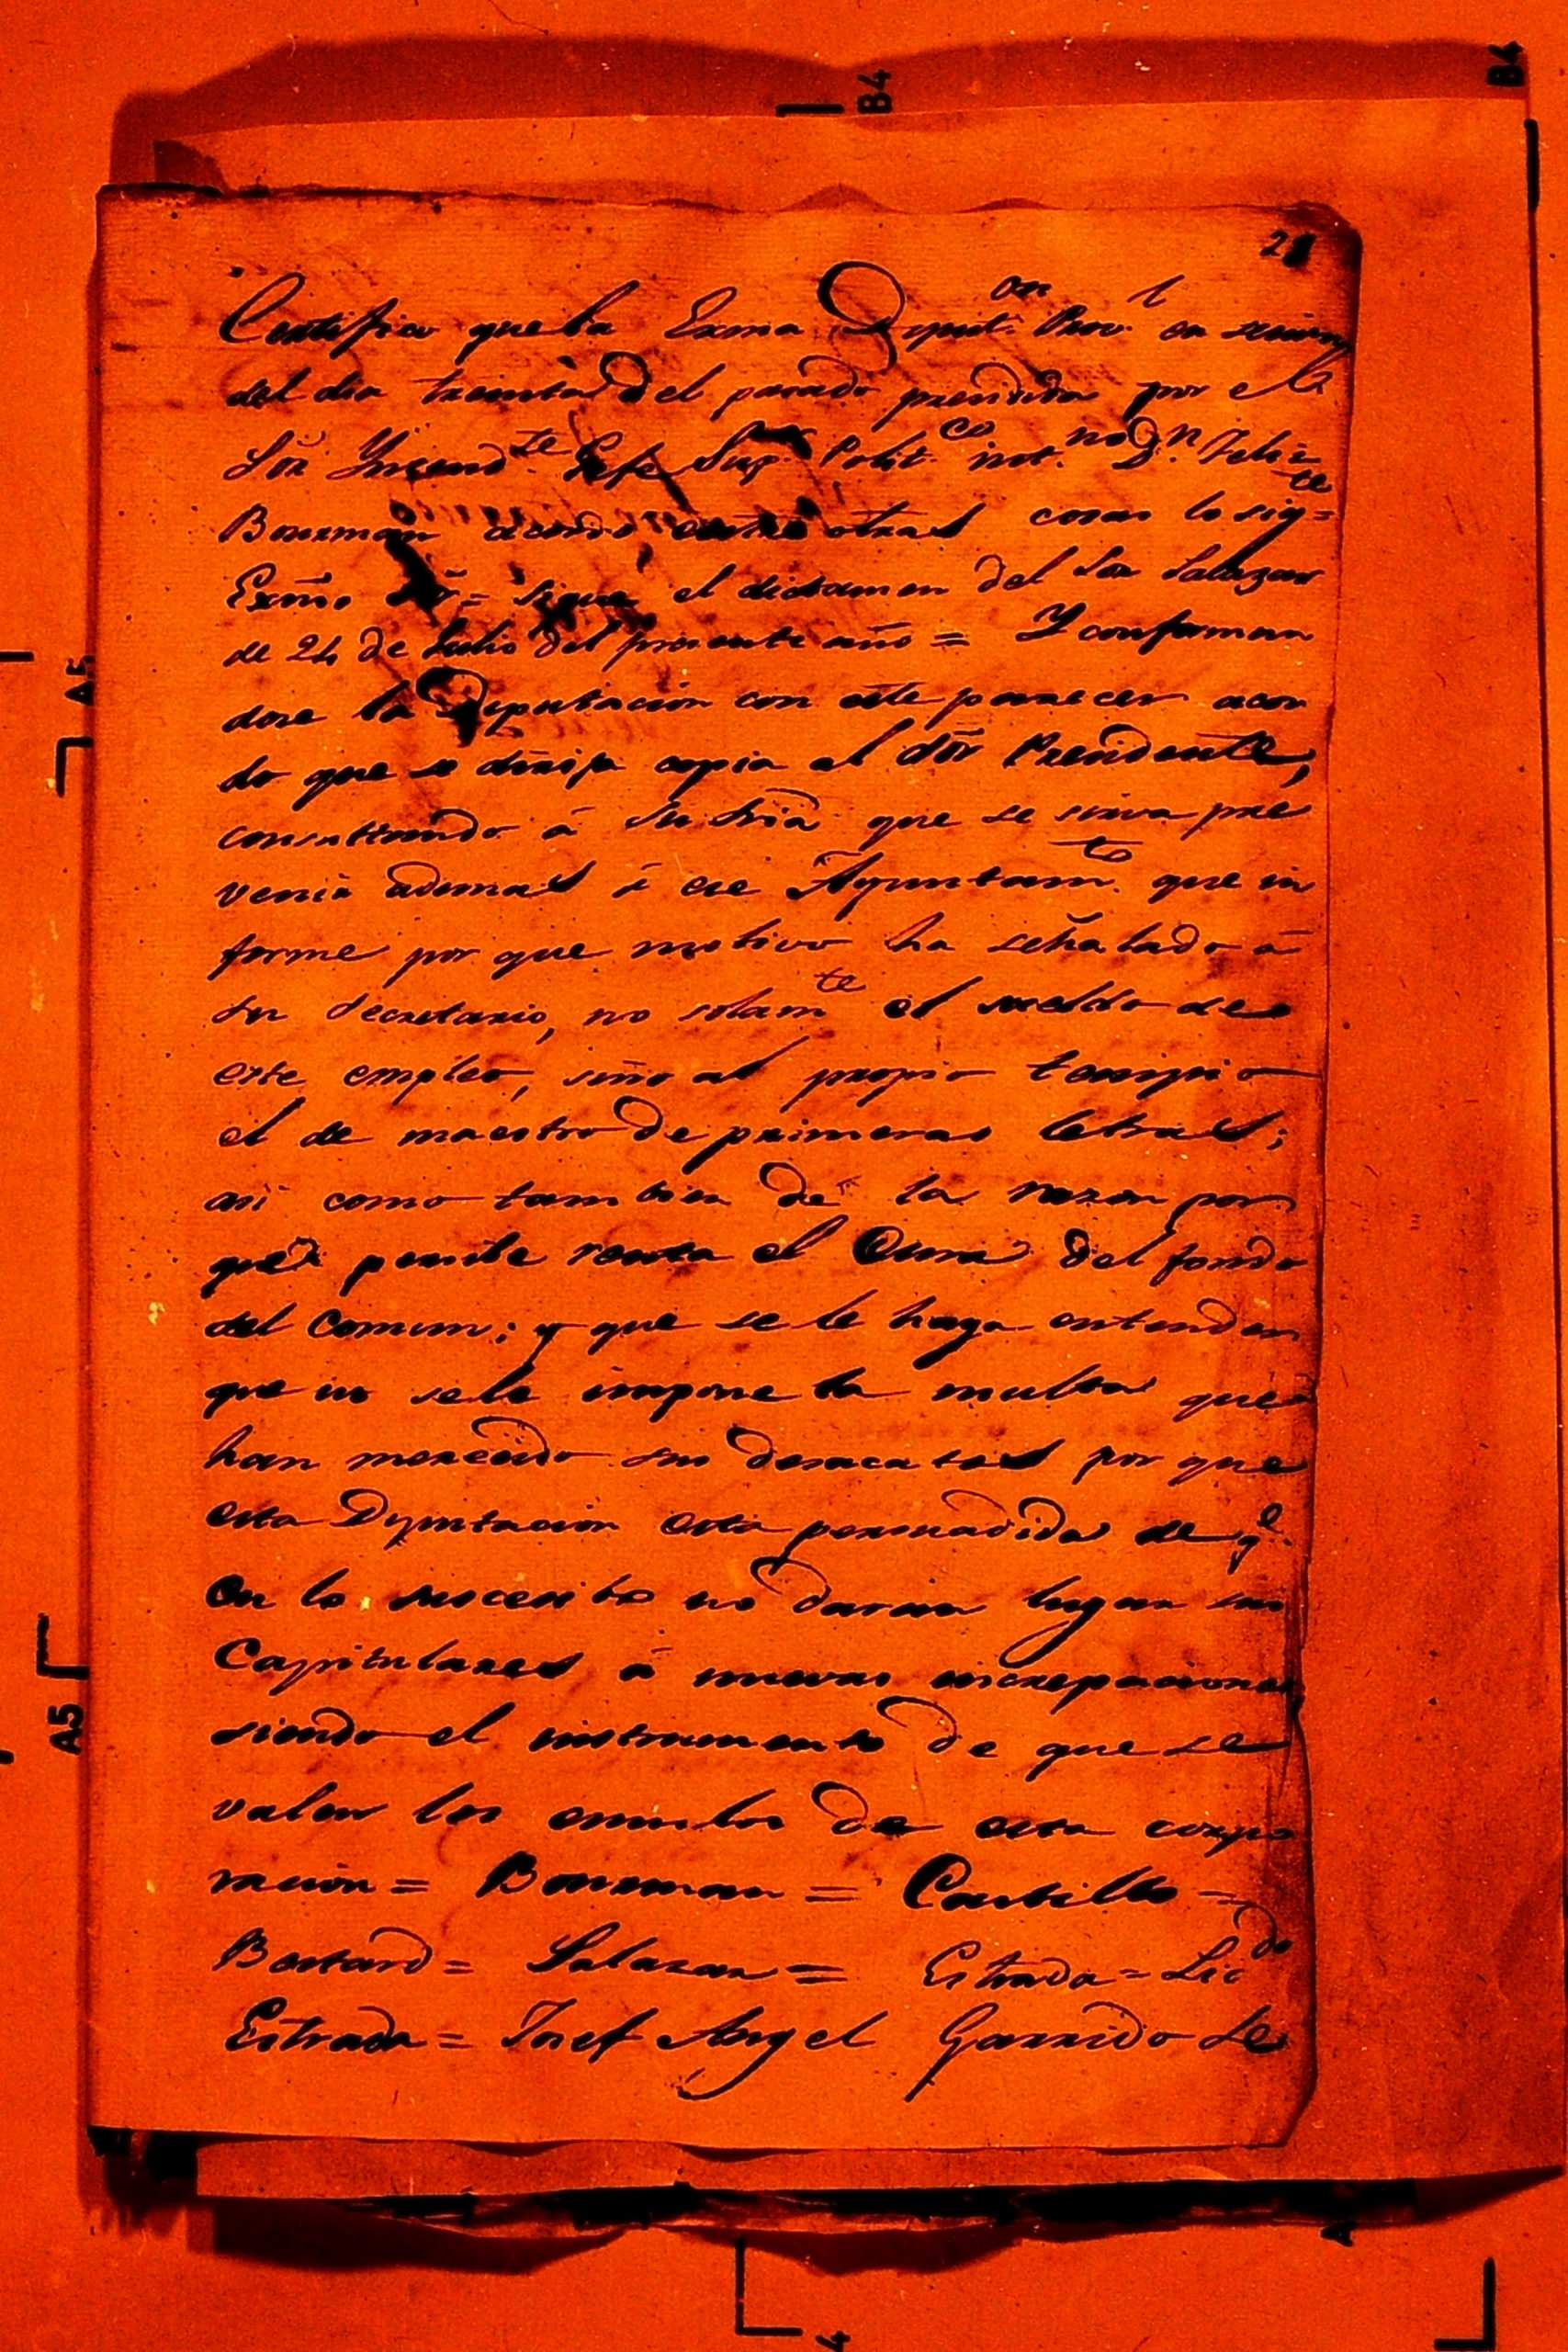 28
Certifico que la Exma Diput.on Prov.l en sesion
del dia treinta del pasado presidida por el
Sõr Intend.te Gefe Sup.r Polit.co int.no D.n Felix
Bourman acordó entre otras cosas lo sig.te=
Exm̃o Sõr= Sigue el dictamen del Sõr Salazar
de 24 de Julio del presente año = Y conforman
dose la Diputacion con este parecer acor
do que se dirija copia al Sõr Presidente,
consultando á Su Sria que se sirva pre
venir ademas á ese Ayuntam.to que in
forme por que motivo ha señalado á
su Secretario, no solam.te el sueldo de
este empleo, sino al propio tempio
el de maestro de primeras letras;
asi como tambien de la razon por
que percibe renta el Cura del fondo
del Comun; y que se le haga entender
que no se le impone la multa que
han merecido sus desacatos por que
esta Diputacion está persuadida de q.e
en lo sucesibo no daran lugar sus
Capitulares á nuevas increpaciones
siendo el instrumento de que se
valen los emulos de esta corpo
racion = Bourman = Castillo =
Bastard = Salazar = Estrada = Lic.do
Estrada = Josef Angel Garrido Se
B4
B4
A5
A5
A
4